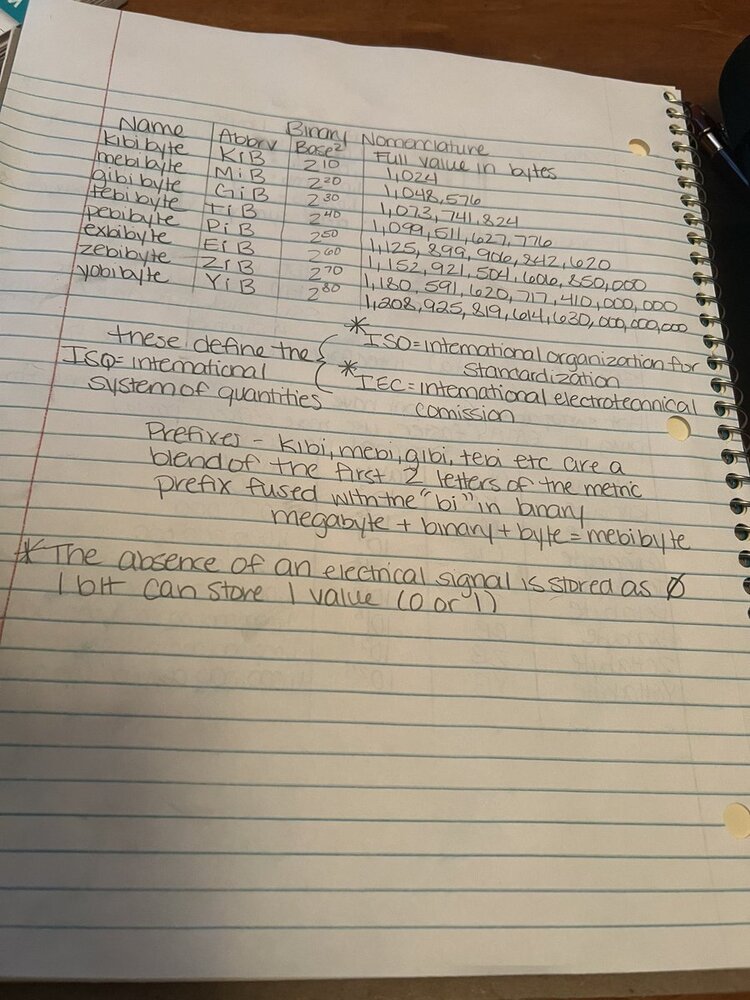 Binary Nomenclature
Name Abbrv Base2 Full value in bytes
kibibyte KiB 2^10 1,024
mebibyte MiB 2^20 1,048,576
gibibyte GiB 2^30 1,073,741,824
tebibyte TiB 2^40 1,099,511,627,776
pebibyte PiB 2^50 1,125,899,906,842,620
exbibyte EiB 2^60 1,152,921,504,606,850,000
zebibyte ZiB 2^70 1,180,591,620,717,410,000,000
yobibyte YiB 2^80 1,208,925,819,614,630,000,000,000
these define the { * ISO = international organization for
ISQ = international standardization
system of quantities * IEC = international electrotechnical
comission
Prefixes - kibi, mebi, gibi, tebi etc are a
blend of the first 2 letters of the metric
prefix fused with the "bi" in binary
megabyte + binary + byte = mebibyte
* The absence of an electrical signal is stored as Ø
1 bit can store 1 value (0 or 1)